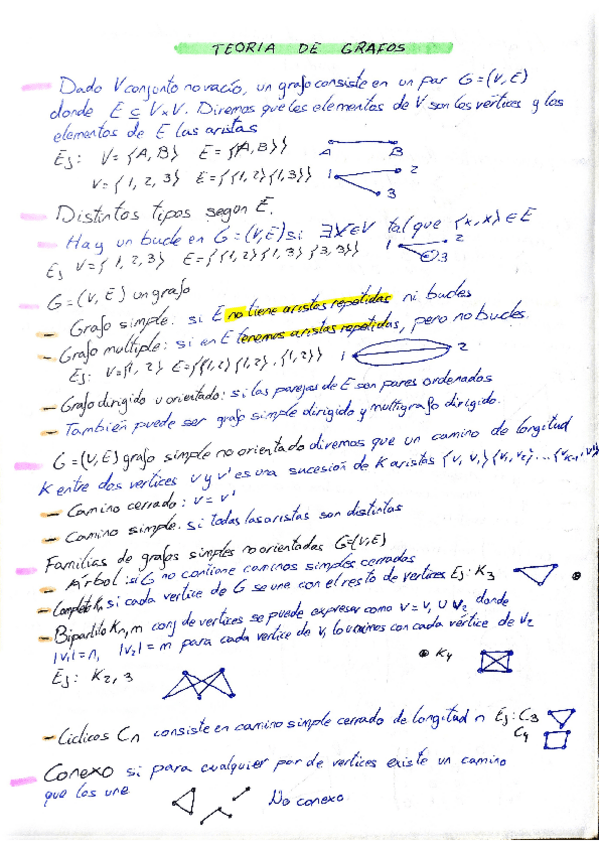 TEORIA DE GRAFOS
Dado V conjunto no vacío, un grafo consiste en un par G=(V,E)
donde E ⊆ V×V. Diremos que los elementos de V son los vértices y los
elementos de E las aristas
Ej: V={A,B} E={{A,B}} A B
V={1,2,3} E={{1,2}{1,3}} 1 2
3
Distintos tipos segon E.
Hay un bucle en G=(V,E) si ∃x∈V tal que {x,x}∈E
Ej V={1,2,3} E={{1,2}{1,3}{3,3}} 1 2
3
G=(V,E) un grafo
Grafo simple: si E no tiene aristas repetidas ni bucles
Grafo multiple: si en E tenemos aristas repetidas, pero no bucles.
Ej: V={1,2} E={{1,2}{1,2},{1,2}} 1 2
Grafo dirigido u orientado: si las parejas de E son pares ordenados
También puede ser grafo simple dirigido y multigrafo dirigido.
G=(V,E) grafo simple no orientado diremos que un camino de longitud
K entre dos vertices v y v' es una sucesión de K aristas {v,v₁}{v₁,v₂}...{vₖ₋₁,v'}
Camino cerrado: v=v'
Camino simple: si todas las aristas son distintas
Familias de grafos simples no orientadas G=(V,E)
Arbol: si G no contiene caminos simples cerrados
Completo Kₙ si cada vertice de G se une con el resto de vertices Ej: K₃
Bipartito Kₙ,m conj de vertices se puede expresar como V=V₁∪V₂ donde
|V₁|=n, |V₂|=m para cada vertice de V₁ lo unimos con cada vértice de V₂
K₄
Ej: K₂,₃
Ciclicos Cₙ consiste en camino simple cerrado de longitud n Ej: C₃
C₄
Conexo si para cualquier par de vertices existe un camino
que los une
No conexo